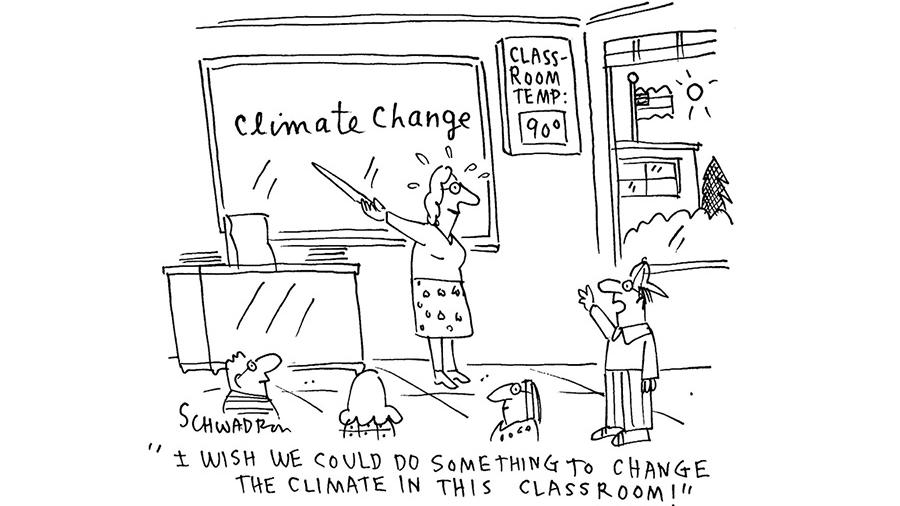 CLASS-
ROOM
TEMP:
90°
Climate Change
SCHWADRON
"I WISH WE COULD DO SOMETHING TO CHANGE
THE CLIMATE IN THIS CLASSROOM!"